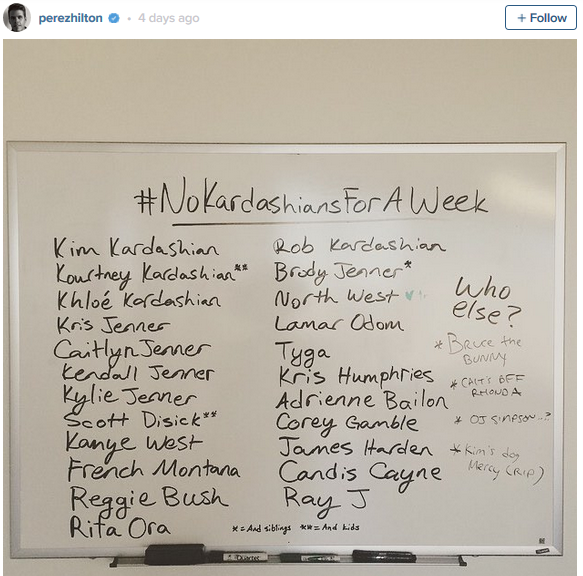 perezhilton • 4 days ago
+ Follow
#NoKardashiansForAWeek
Kim Kardashian
Kourtney Kardashian**
Khloé Kardashian
Kris Jenner
Caitlyn Jenner
Kendall Jenner
Kylie Jenner
Scott Disick**
Kanye West
French Montana
Reggie Bush
Rita Ora
Rob Kardashian
Brody Jenner*
North West
Lamar Odom
Tyga
Kris Humphries
Adrienne Bailon
Corey Gamble
James Harden
Candis Cayne
Ray J
* = And siblings ** = And kids
Who
else?
* Bruce the
Bunny
* Cait's BFF
Rhonda
* OJ Simpson...?
* Kim's dog
Mercy (RIP)
Quartet